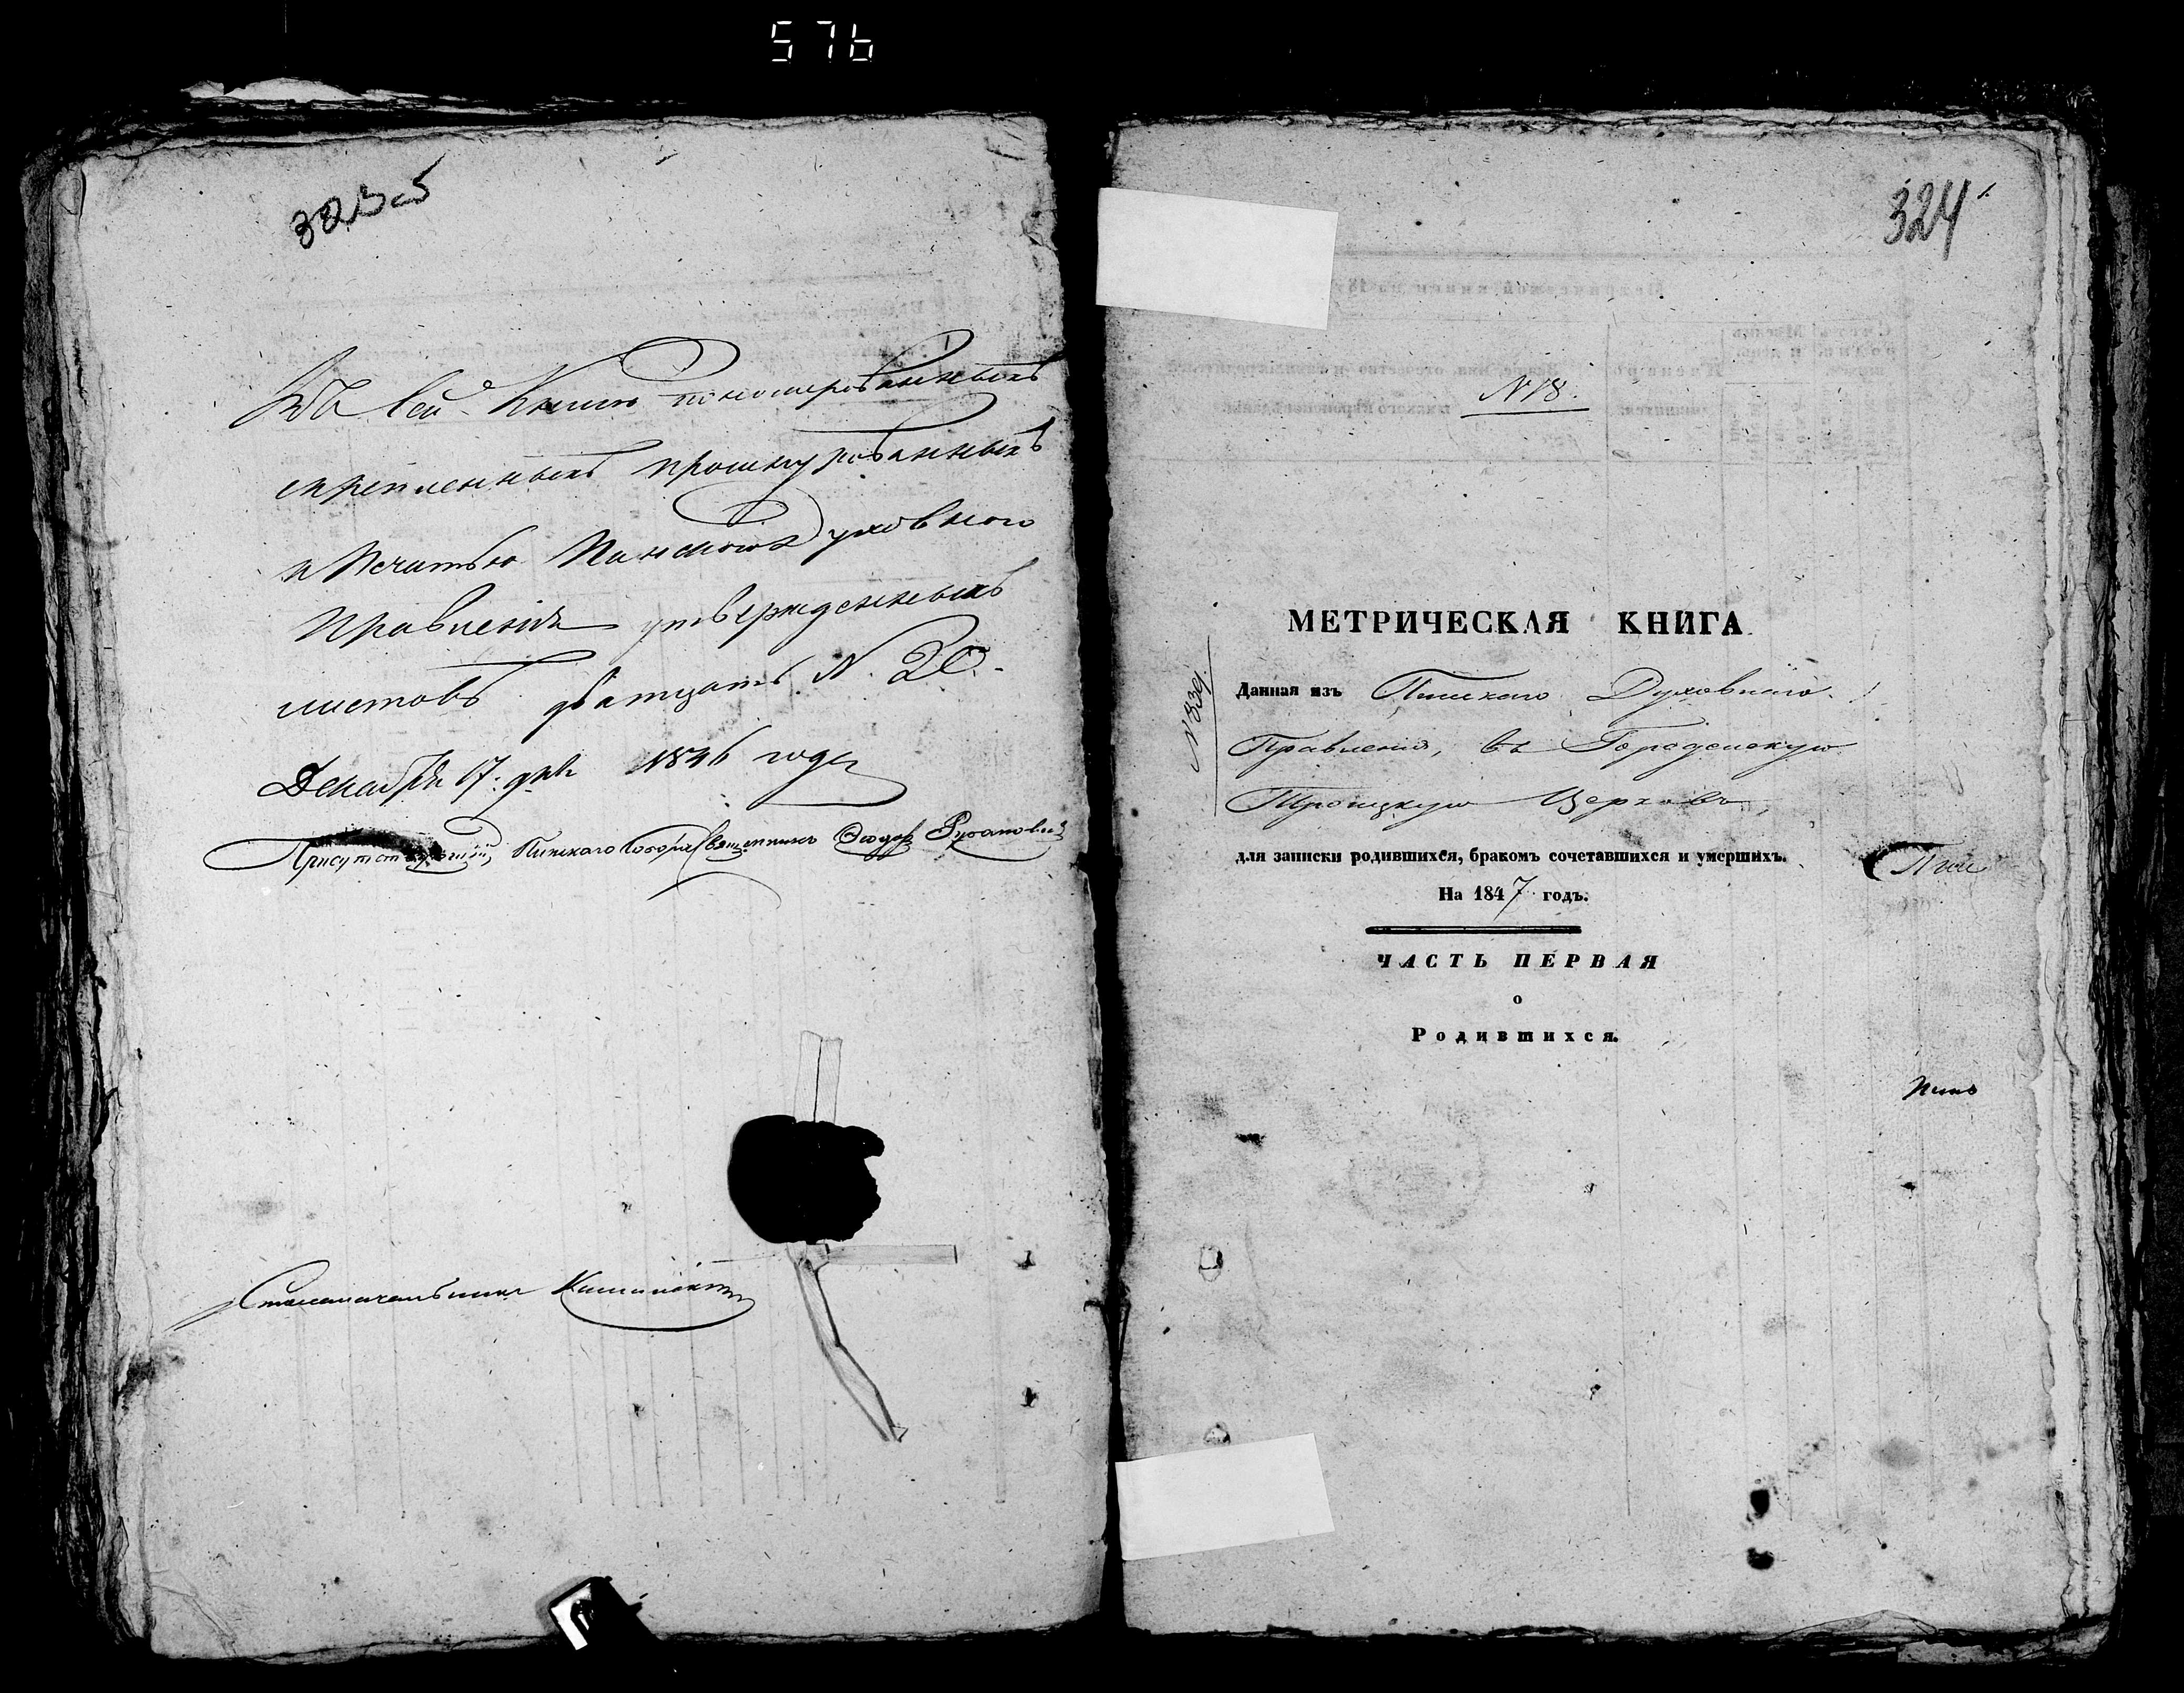 576
323 б
Въ сей Книги пономерованныхъ
скрепленныхъ прошнурованныхъ
и Печатью Пинского Духовного
Правленія утвержденныхъ
листовъ дватцать N. 20.
Декабря 17. дня 1846 года
Присутствующій, Пинскаго Собора Священникъ Феодоръ
Столоначальникъ
324
N 18.
МЕТРИЧЕСКАЯ КНИГА
N 839
Данная изъ Пинскаго Духовнаго
Правленія, въ Городенскую
Троицкую Церковь,
для записки родившихся, бракомъ сочетавшихся и умершихъ.
На 1847 годъ.
ЧАСТЬ ПЕРВАЯ
о
Родившихся.